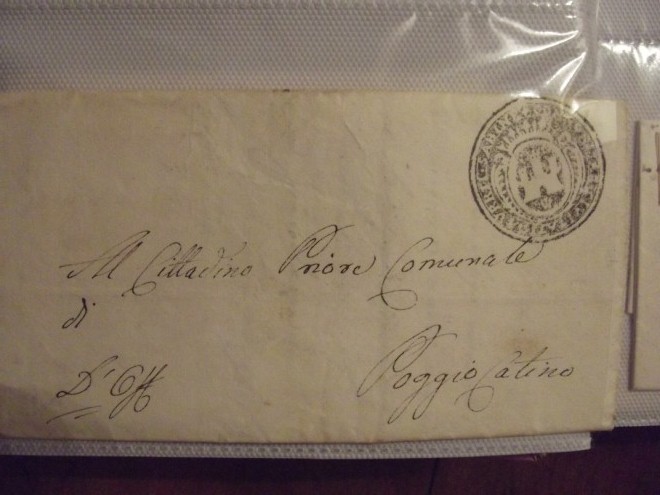 Al Cittadino Priore Comunale
di
Poggio Catino
D'Off